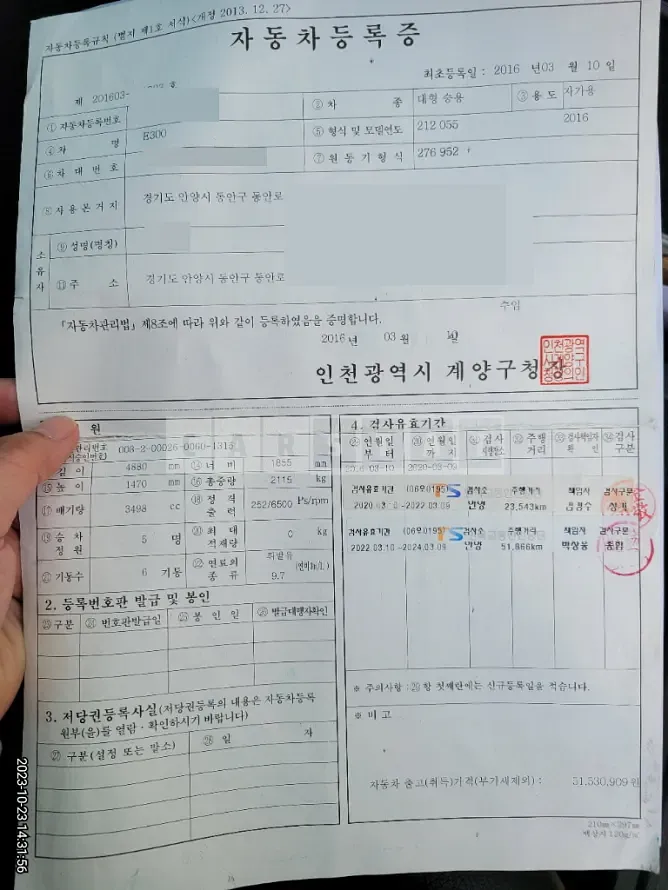 자동차등록규칙(별지 제1호 서식)<개정 2013. 12. 27>
자동차등록증
최초등록일 : 2016 년 03 월 10 일
제 201603-
① 자동차등록번호 ② 차 종 대형 승용 ③ 용 도 자가용
④ 차 명 E300 ⑤ 형식 및 모델연도 212 055 2016
⑥ 차 대 번 호 ⑦ 원 동 기 형 식 276 952
⑧ 사 용 본 거 지 경기도 안양시 동안구 동안로
소유자 ⑨ 성명(명칭)
⑪ 주 소 경기도 안양시 동안구 동안로
수입
「자동차관리법」 제8조에 따라 위와 같이 등록하였음을 증명합니다.
2016 년 03 월
인천광역시 계양구청장
원
008-2-00026-0060-1315
길 이 4880 cm 너 비 1855 mm
높 이 1470 mm 총중량 2115 kg
배기량 3498 cc 정 격 출 력 252/6500 Ps/rpm
승 차 정 원 5 명 최 대 적재량 0 kg
기통수 6 기통 연료의 종 류 휘발유 9.7
2. 등록번호판 발급 및 봉인
구분 번호판발급일 봉 인 일 발급대행자확인
3. 저당권등록사실(저당권등록의 내용은 자동차등록
원부(을)를 열람 · 확인하시기 바랍니다)
구분(설정 또는 말소) 일 자
4. 검사유효기간
연월일 부터 연월일 까지 검사 주행 거리 확 인 검사 구분
2016-03-10 2020-03-09
검사유효기간 (06우0195) TS 검사소 주행거리 책임자 검사구분
2022.03.09 안녕 23,543km
검사유효기간 (06우0195) TS 검사소 주행거리 책임자 검사구분
2022.03.10 -2024.03.09 안녕 51,866km 박상웅 종합
※ 주의사항 : 29 항 첫째란에는 신규등록일을 적습니다.
※ 비 고
자동차 출고(취득)가격(부가세제외) : 51,530,909 원
210㎜×297㎜
백상지 120g/㎡
2023-10-23 14:31:56